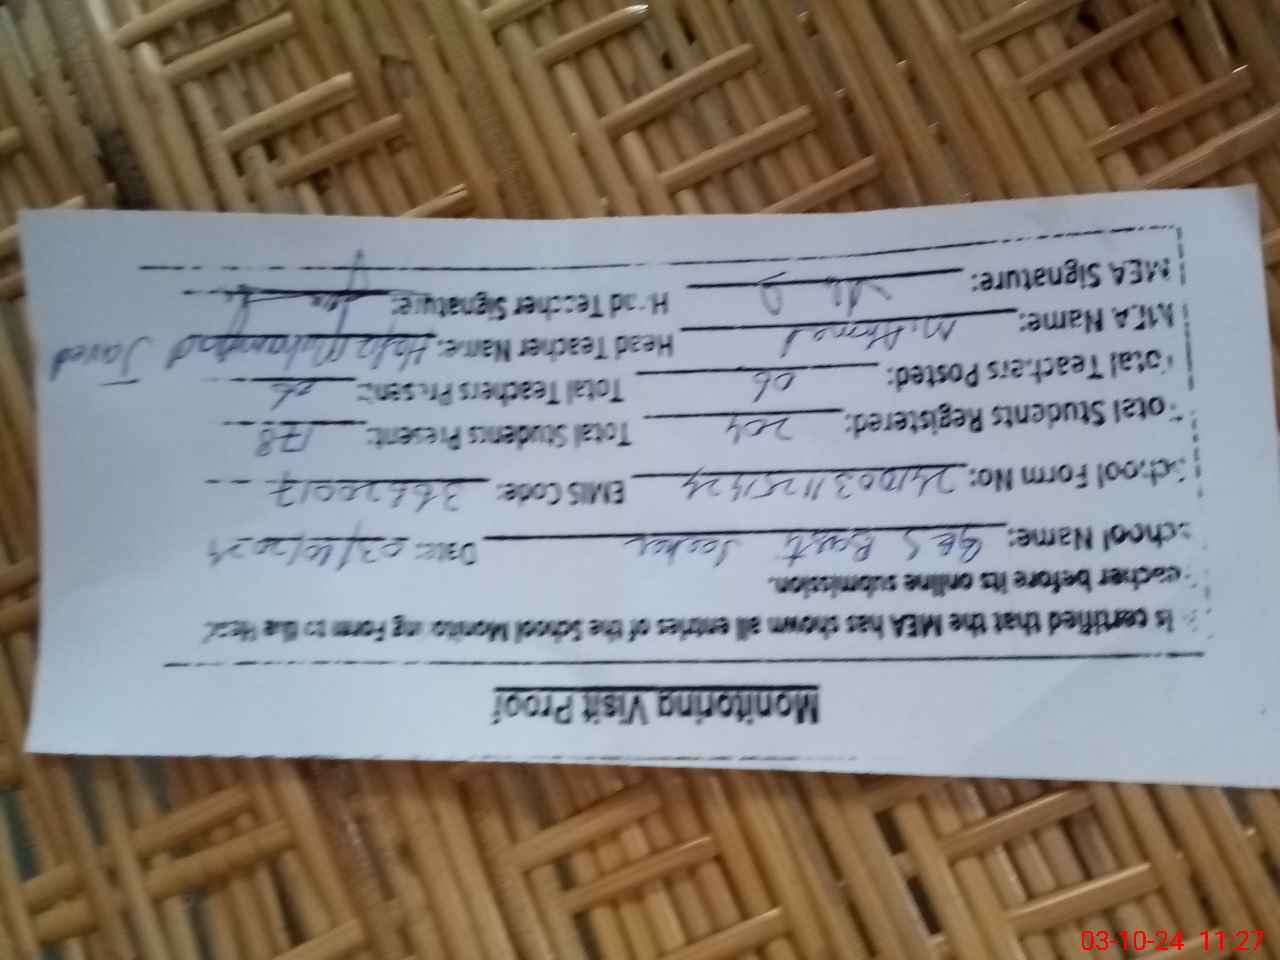 Monitoring Visit Proof
is certified that the MEA has shown all entries of the School Monitoring Form to the Head
eacher before its online submission.
chool Name: GES Basti Date: 03/10/2024
School Form No: EMIS Code: 36620017
Total Students Registered: 204 Total Students Present: 178
Total Teachers Posted: 06 Total Teachers Present: 06
MEA Name: M. Ahmed Head Teacher Name: Hafiz Muhammad Javed
MEA Signature: Head Teacher Signature:
03-10-24 11:27